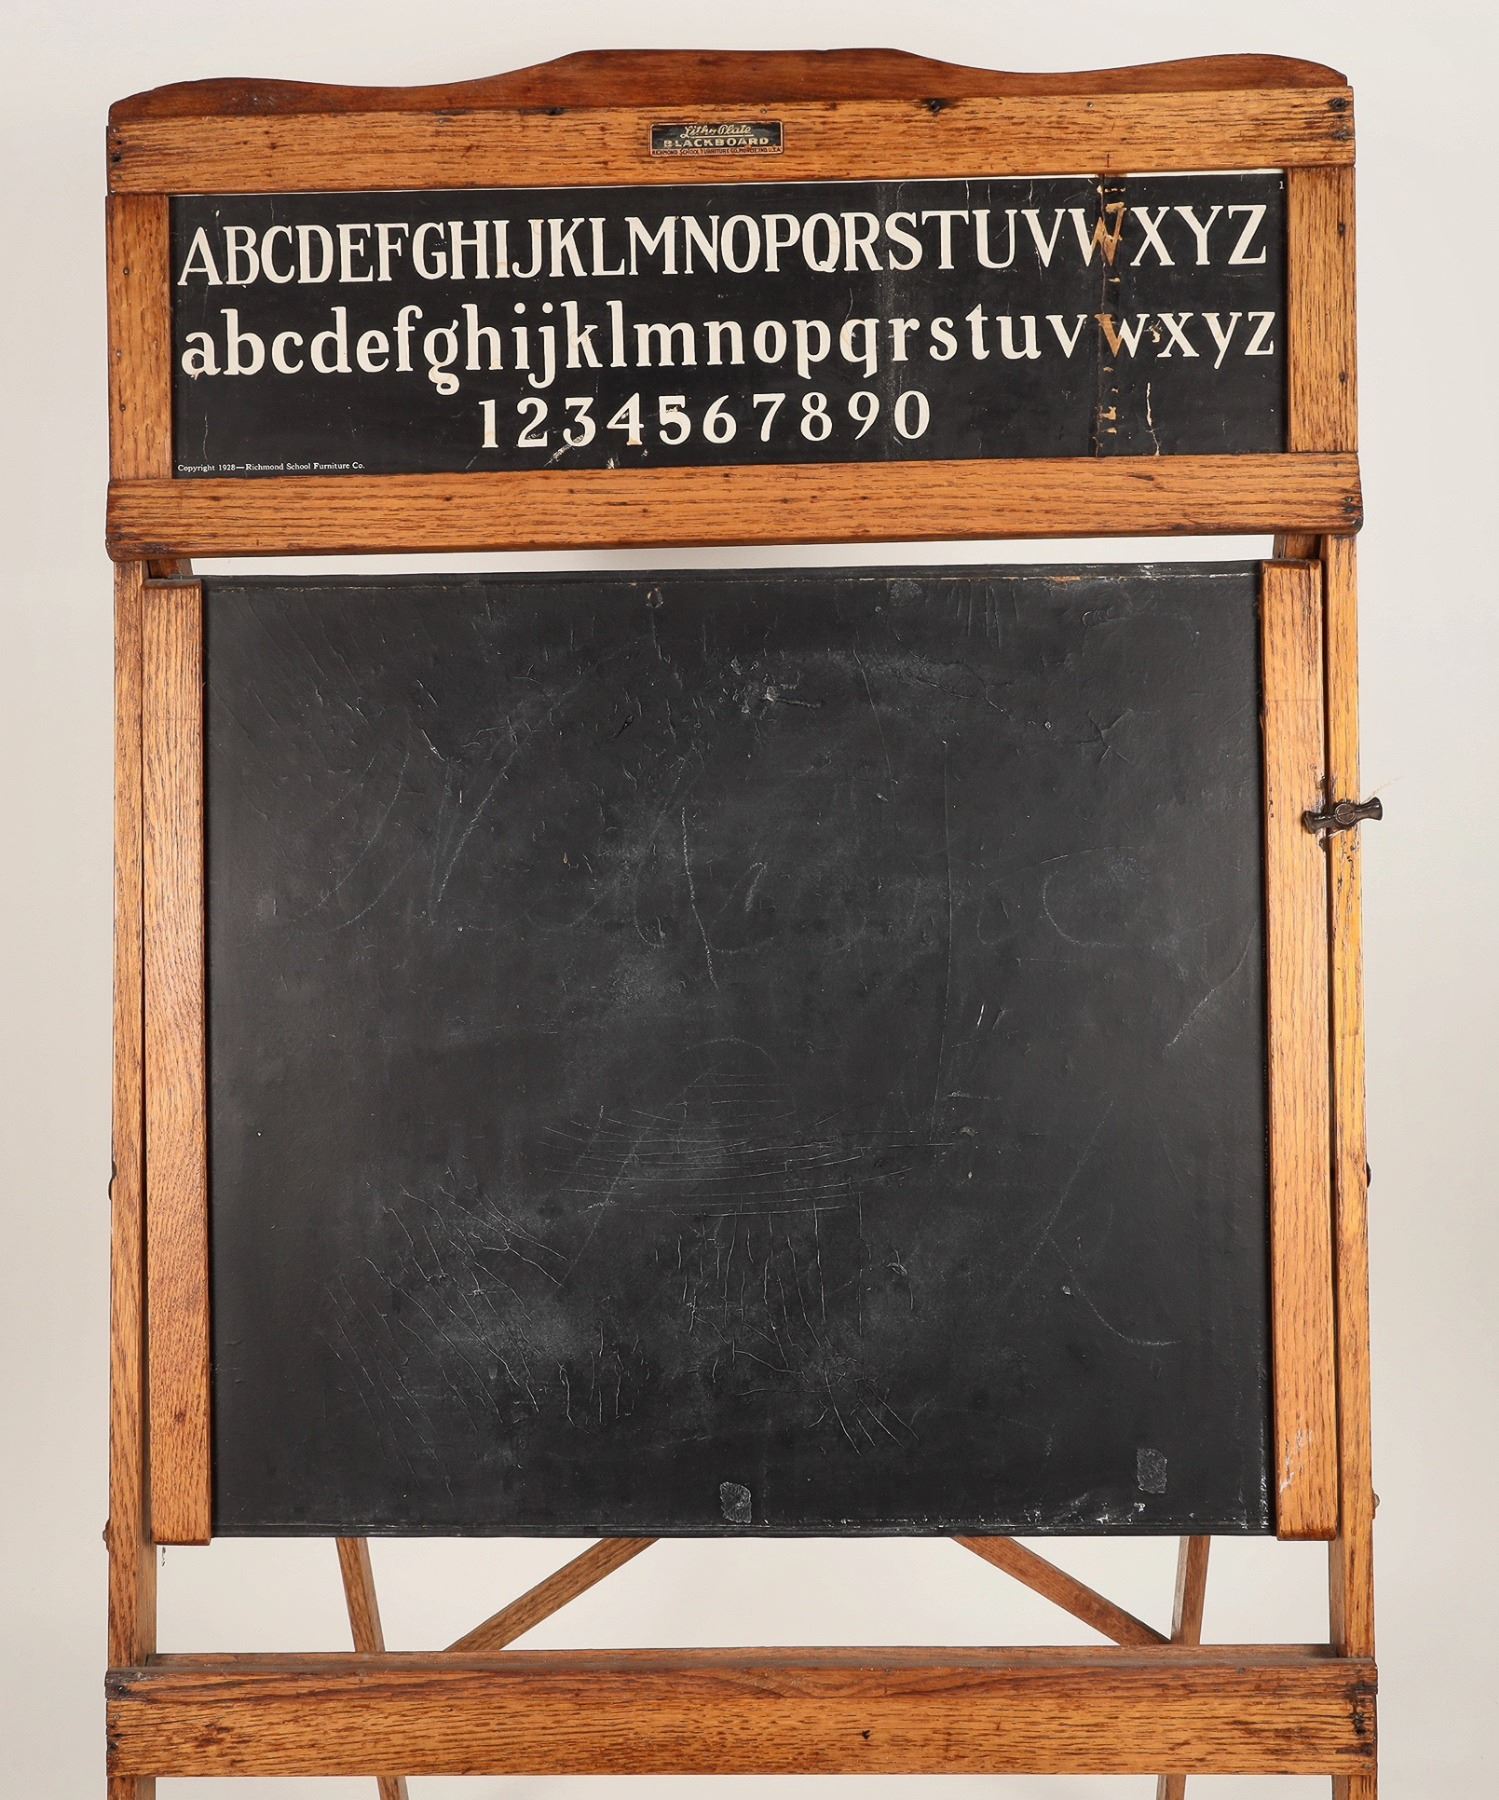 Litho Plate
BLACKBOARD
RICHMOND SCHOOL FURNITURE CO. MUNCIE, IND. U.S.A.
1
ABCDEFGHIJKLMNOPQRSTUVWXYZ
abcdefghijklmnopqrstuvwxyz
1234567890
Copyright 1928—Richmond School Furniture Co.